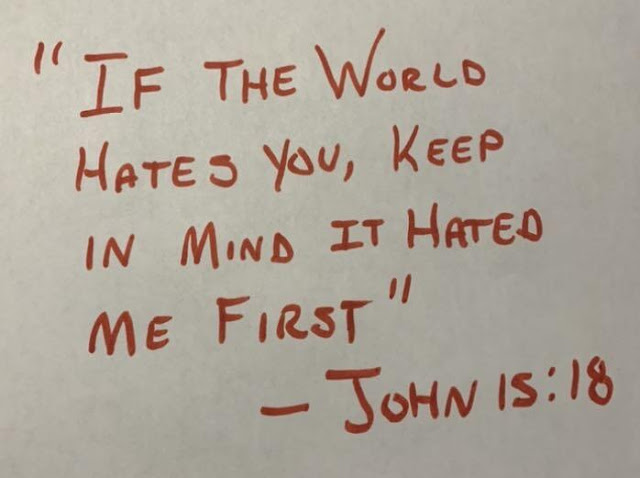 "If THE WORLD
HATES YOU, KEEP
IN MIND IT HATED
ME FIRST"
– JOHN 15:18